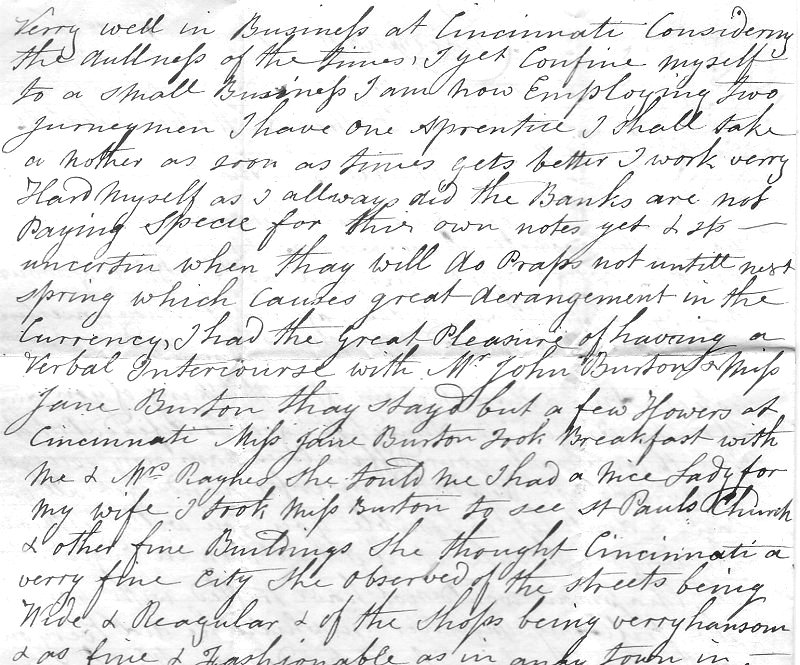 Verry well in Business at Cincinnati Considering
the dullness of the times, I yet Confine myself
to a small Business I am now Employing two
Jurneymen I have one Aprentice I shall take
a nother as soon as times gets better I work verry
Hard Myself as I allways did the Banks are not
Paying Specie for this own notes yet & its —
uncertin when thay will do Praps not untill next
spring which Causes great derangement in the
Currency, I had the great Pleasure of having a
Verbal Intercourse with Mr John Burton & Miss
Jane Burton thay stayd but a few Howers at
Cincinnati Miss Jane Burton Took Breakfast with
Me & Mrs Raynes She tould me I had a Nice Lady for
my wife I took Miss Burton to see St Pauls Church
& other fine Buildings She thought Cincinnati a
verry fine City She observed of the streets being
Wide & Reagular & of the Shops being verry hansom
& as fine & Fashionable as in anay town in —